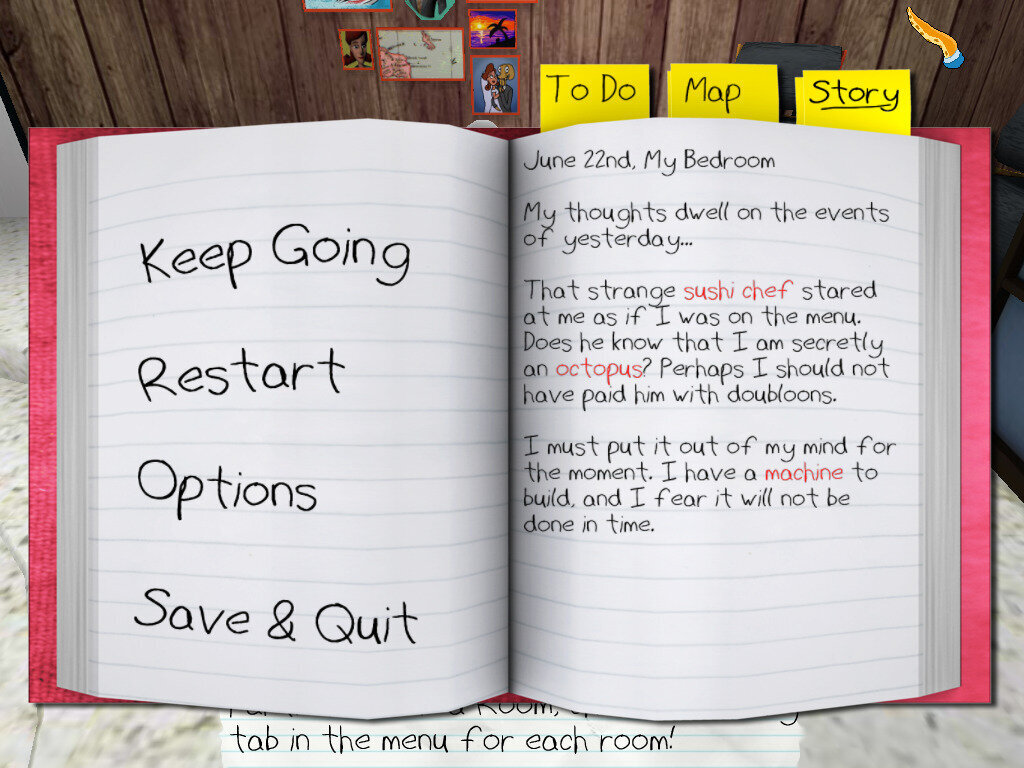 To Do
Map
Story
Keep Going
Restart
Options
Save & Quit
June 22nd, My Bedroom
My thoughts dwell on the events
of yesterday...
That strange sushi chef stared
at me as if I was on the menu.
Does he know that I am secretly
an octopus? Perhaps I should not
have paid him with doubloons.
I must put it out of my mind for
the moment. I have a machine to
build, and I fear it will not be
done in time.
Room,
tab in the menu for each room!